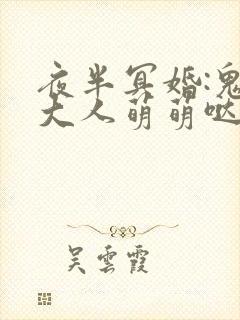 夜半冥婚:鬼
大人萌萌哒
吴雲霞